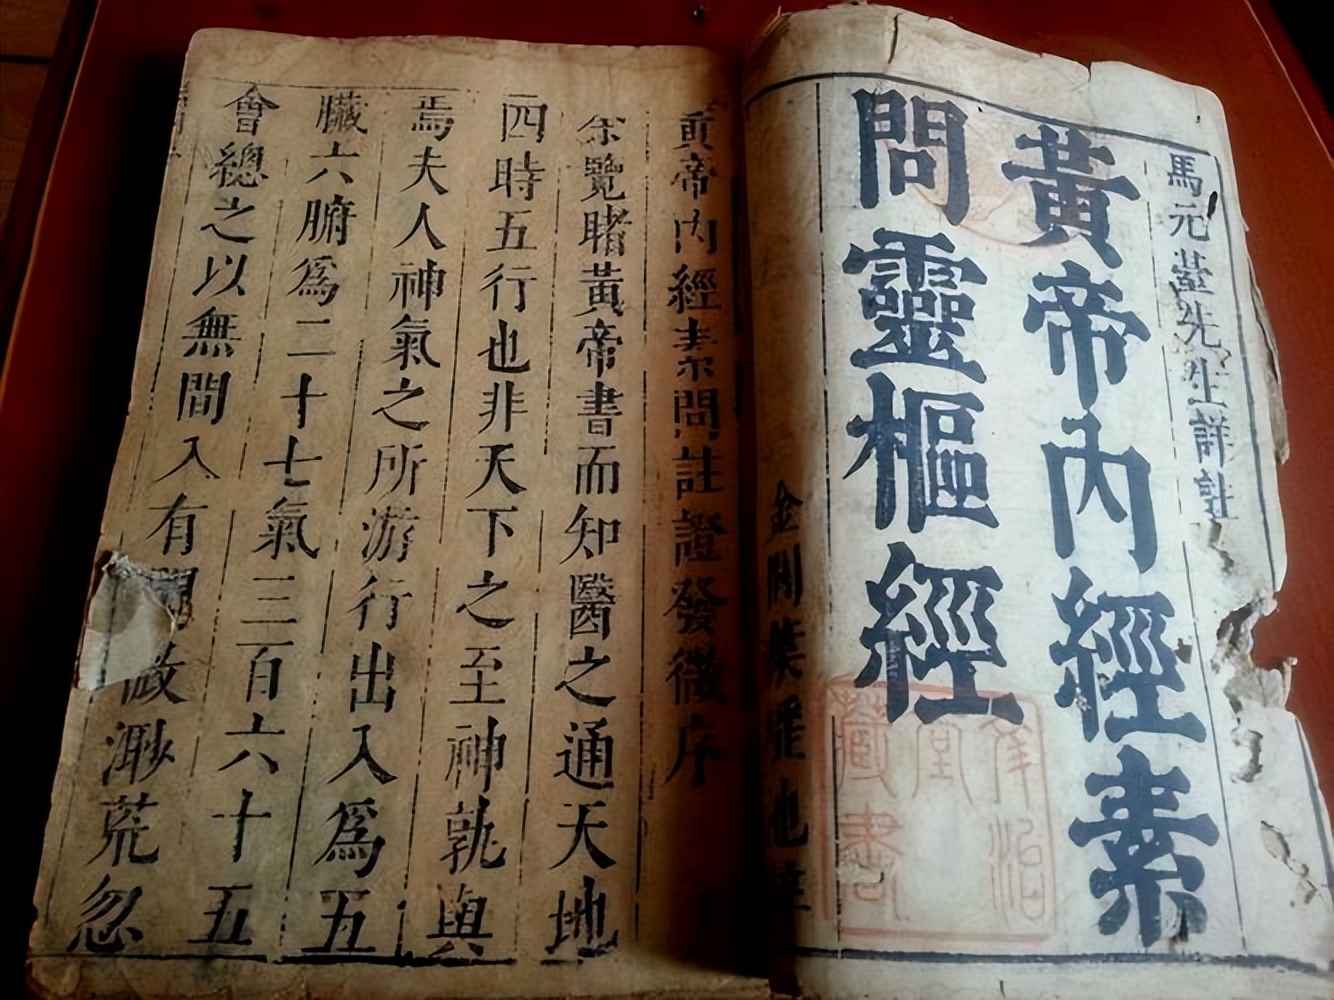 馬元臺先生詳註
黃帝內經素
問靈樞經
藏書
黃帝內經素問註證發微序
余覽睹黃帝書而知醫之通天地
四時五行也非天下之至神孰與
焉夫人神氣之所游行出入為五
臟六腑為二十七氣三百六十五
會總之以無間入有
渺荒忽